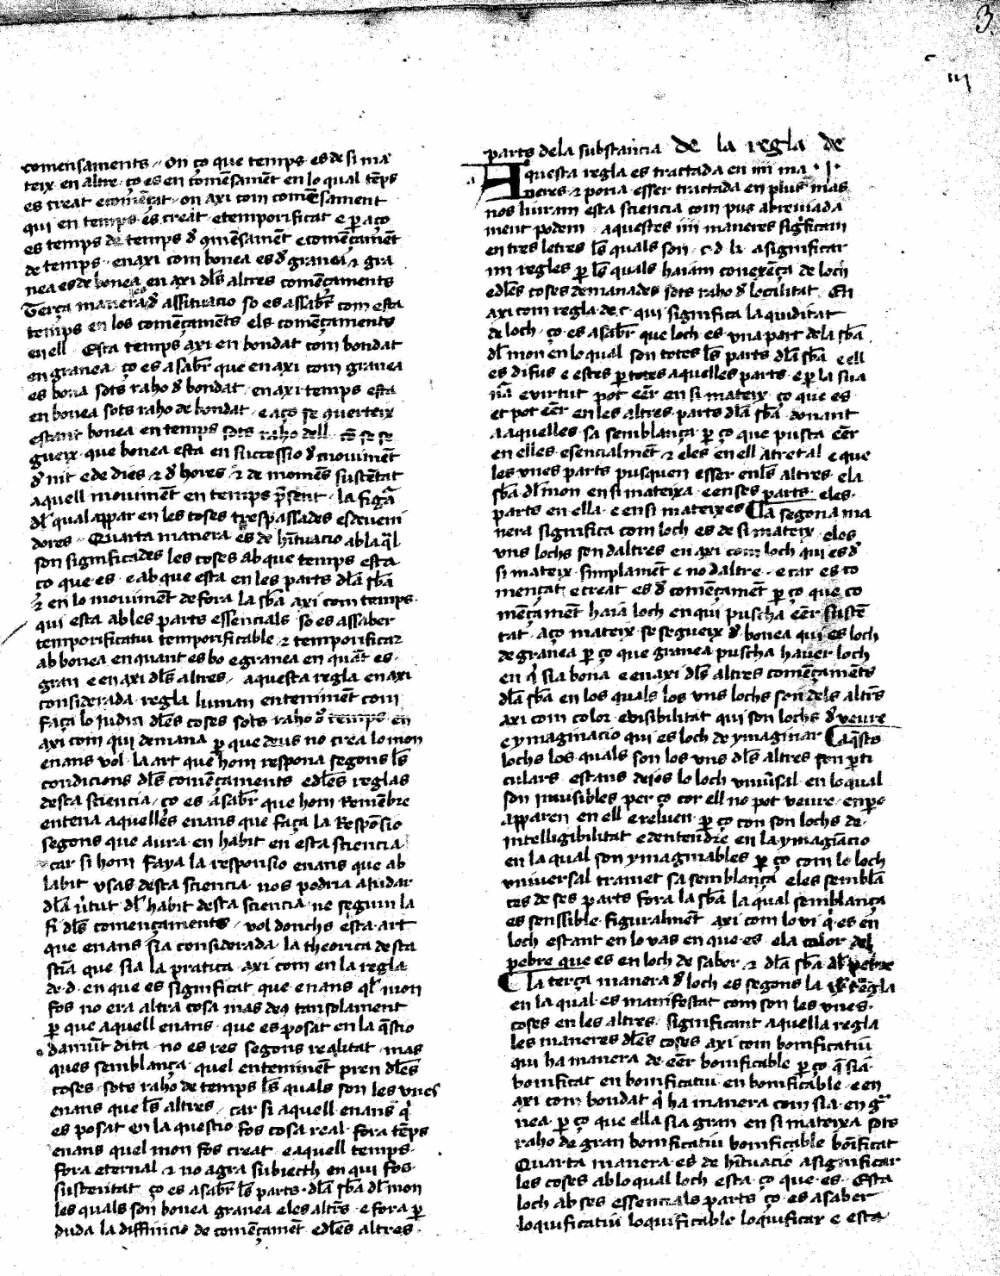 3
iij
comensaments · On ço que temps es de si ma
teix en altre · ço es en comēsamēt en lo qual tēps
es creat e comēçat · on axi com comēsament
qui en temps es creat e temporificat e ꝑ aço
es temps de temps d' comēsamēt e comēçamēt
de temps · en axi com bonea es d' granea ⁊ gra
nea es de bonea en axi dl̄s altres començaments
Terça manera d' assituacio so es assabr̄ com esta
temps en los comēçamēts els comēçaments
en ell · Esta temps axi en bondat com bondat
en granea · ço es a sabr̄ que en axi com granea
es bona sots raho d' bondat · en axi temps esta
en bonea sots raho de bondat · e aço se querteix
estant bonea en temps sots raho dell · cō se se
gueix · que bonea esta en successio d' moviment
d' nit e de dies ⁊ d' hores ⁊ de momēs sustētat
aquell movimēt en temps p̄sent · la figā
dl̄ qual appar en les coses trespassades esdeveni
dores · Quarta manera es de hītuacio ab la q̄l
son significades les coses ab que temps esta
ço que es · e ab que esta en les parts dl̄a sb̄a
⁊ en lo movimēt de fora la sb̄a axi com temps ·
qui esta ab les parts essencials so es assaber
temporificatiu temporificable ⁊ temporificar
ab bonea en quant es bo e granea en quāt es ·
gran e en axi dl̄s altres · aquesta regla en axi
considerada regla l'uman entenimēt com
faça lo judici dl̄es coses sots raho d' temps en
axi com qui demana ꝑ que deus no crea lo mon
enans vol · la art que hom respona segons l̄s
condicions dl̄s comēçaments e dl̄es reglas
desta sciencia · ço es a sabr̄ que hom remēbre
entena aquelles enans que faça la respōsio
segons que aura en habit en esta sciencia
car si hom faya la responsio enans que ab
labit usas desta sciencia nos podria ajudar
dl̄a v̄tut dl̄ habit desta sciencia ne seguin la
fi dl̄s començaments · vol donchs esta art
que enans sia considerada la theorica desta
sciā que sia la pratica axi com en la regla
de · d · en que es significat que enans ql̄ mon
fos no era altra cosa mas deus tansolament
ꝑ que aquell enans · que es posat en la q̄stio
damūt dita · no es res segons realitat · mas
ques semblança · quel entenimēt pren dl̄es
coses · sots raho de temps l̄s quals son les unes
enans que l̄s altres · car si aquell enans q̄
es posat en la questio fos cosa real · fora tēps
enans quel mon fos creat · e aquell temps ·
fora eternal ⁊ no agra subiecth en qui fos
sustentat · ço es a sabr̄ l̄s parts · dl̄a sb̄a dl̄ mon
les quals son bonea granea e les altr̄s · e fora ꝑ
duda la diffinicio de començamēt · e dl̄es altres ·
parts de la substancia de la regla de
Aquesta regla es tractada en iiij ma · l ·
neres ⁊ poria esser tractada en plus mas
nos havram esta sciencia com pus abreviada
ment podem · aquestes iiij maneres significam
en tres letres l̄s quals son · c · d · k · a significar
iiij regles ꝑ l̄s quals haiam conexēça de loch
e dl̄es coses demanades sots raho d' localitat · En
axi com regla de · c · qui significa la quiditat
de loch · ço es a sabr̄ que loch es una part de la sb̄a
dl̄ mon en lo qual son totes l̄s parts dl̄a sb̄a · e ell
es difus e estes ꝑ totes aquelles parts · e ꝑ la sua
nā e virtut pot eēr en si mateix ço que es ·
et pot eēr en les altres parts dl̄a sb̄a · donant
a aquelles · sa semblança ꝑ ço que pusca eēr
en elles esencialmēt ⁊ eles en ell atretal e que
les unes parts pusquen esser en l̄s altres · e la
sb̄a dl̄ mon en si mateixa · e en ses parts · eles ·
parts en ella · e en si mateixes La segona ma
nera significa com loch es de si mateix · e los
uns lochs son daltres en axi com loch qui es d'
si mateix · simplamēt e no daltre · e car es co
mençat e creat es d' començamēt ꝑ ço que co
mēçamēt haia loch en qui puscha eēr sustē
tat · aço mateix se segueix d' bonea qui es loch
de granea ꝑ ço que granea puscha haver loch
en q̄ sia bona · e en axi dl̄s altres començamēts
dl̄a sb̄a en los quals los uns lochs son dels altr̄s
axi com color e visibilitat qui son lochs d' veure
e ymaginacio qui es loch de ymaginar Aq̄sts
lochs los quals son los uns dl̄s altres son ꝑti
culars · estans dejos lo loch univ̄sal · en lo qual
son invisibles per ço cor ell no pot veure · en ꝑo
apparen en ell e reluen · ꝑ ço con son lochs de ·
intelligibilitat e dentendre en la ymaginacio
en la qual son ymaginables ꝑ ço com lo loch
universal tramet sa semblança eles semblā
ces de ses parts fora la sb̄a la qual semblança
es sensible figuralmēt axi com lo vi q̄ es en
loch estant en lo vas en que es · e la color del
pebre que es en loch de sabor ⁊ dl̄a sb̄a dl̄ pebre
La terça manera d' loch es segons la regla
en la qual es manifestat com son les unes ·
coses en les altres · significant aquella regla
les maneres dl̄es coses axi com bonificatiu
qui ha manera de eēr bonificable ꝑ ço q̄ sia
bonificat en bonificatiu · en bonificable · e en
axi com bondat q̄ ha manera com sia · en gr̄
nea · ꝑ ço que ella sia gran en si mateixa sots
raho de gran bonificatiu bonificable bonificat
Quarta manera es de hītuacio a significar
les coses ab lo qual loch esta ço que es · Esta
loch ab ses essencials parts ço es a saber
loquificatiu loquificable loquificar e esta